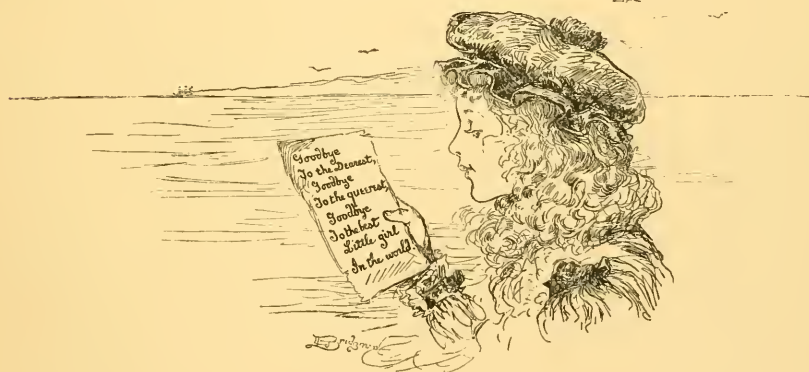 Goodbye
To the Dearest,
Goodbye
To the queerest,
Goodbye
To the best
Little girl
In the world!